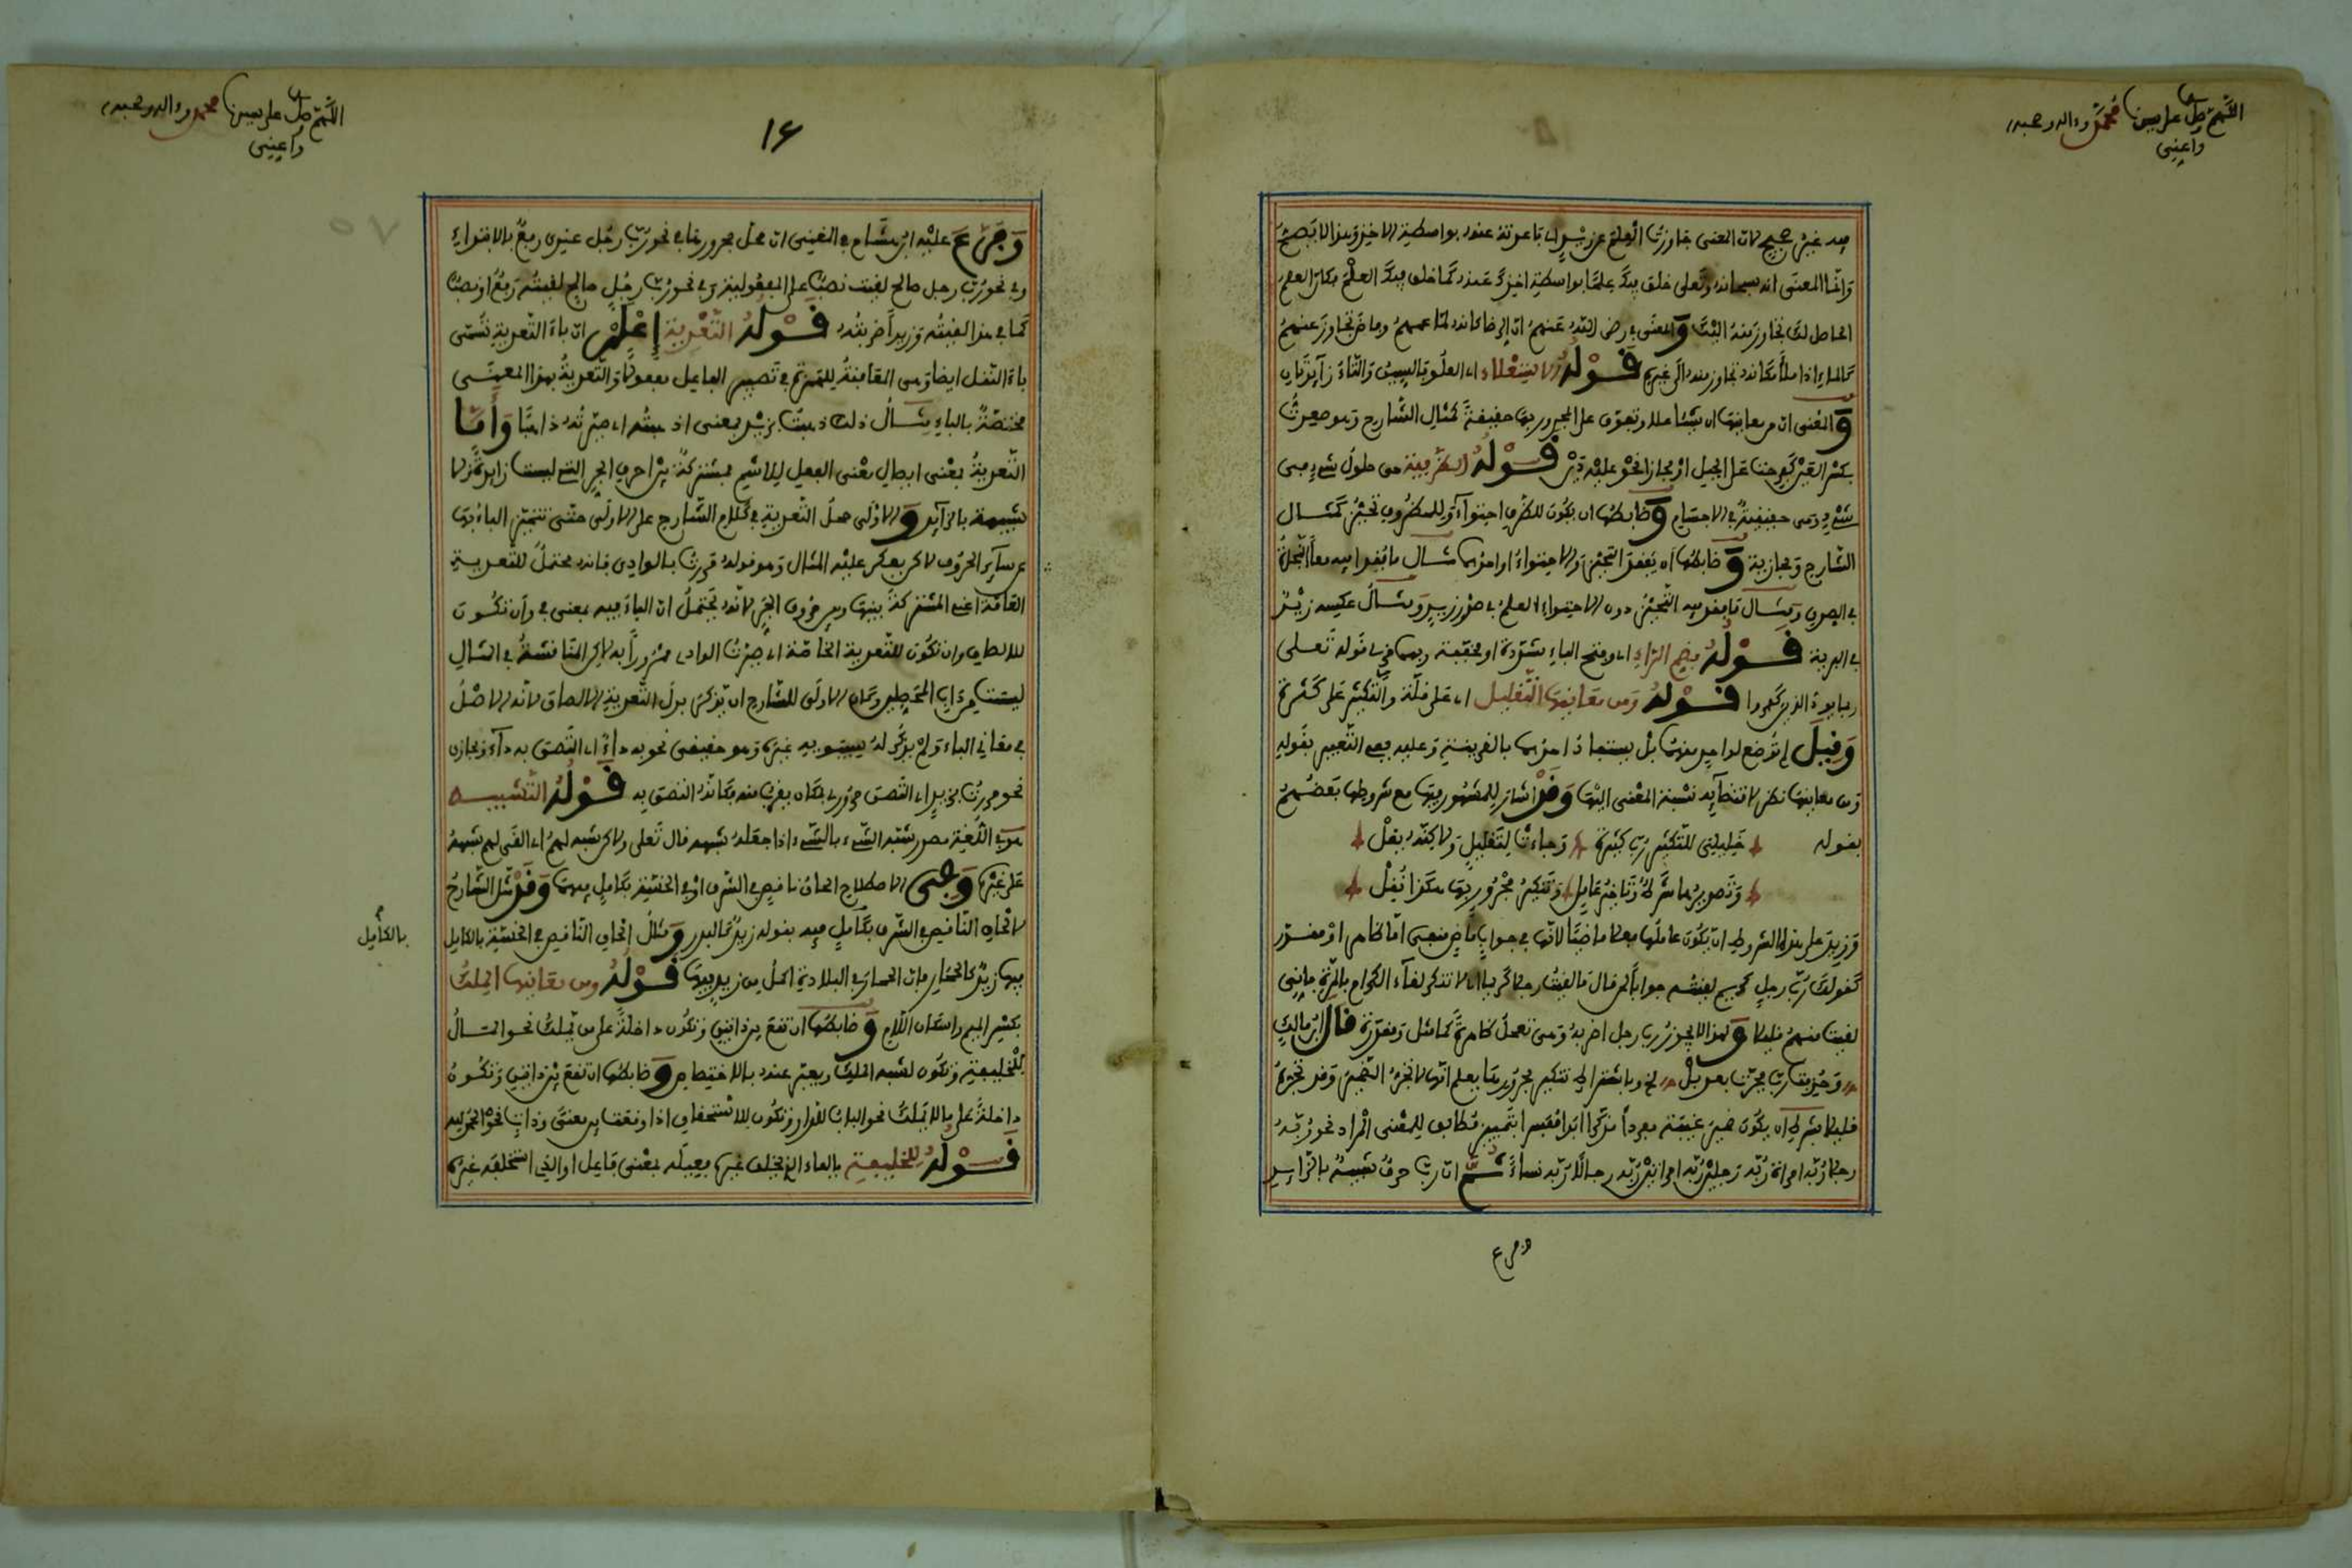 اللهم صل على سيدنا محمد وءاله وصحبه
وأعني
فيه غير صحيح لأن المعنى جاوزت العلم عن زيد أي باعدته عنه بواسطة الأخذ وهذا لا يصح
وإنما المعنى أنه سبحانه وتعلى خلق فيك علما بواسطة أخذك عنه كما خلق فيك العلم فكان العلم
الحاصل لك تجاوز منه إليك والمعنى في رضي الله عنهم أن الرضا كأنه لما عمهم تجاوز عنهم
كالماء إذا ملأ مكانه تجاوز منه إلى غيره قوله الاستعلاء أي العلو فالسين والتاء زايدتان
والمعنى أن من معانيها أن شيئا علا وتفوق على المجرور بها حقيقة كمثال الشارح وهو صعدت
على الجبل أو مجازا نحو عليه دين قوله الظرفية هي حلول شيء في
شيء وهي حقيقية في الأجسام وضابطها أن يكون للظرف احتواء وللمظروف تحيز كمثال
الشارح ومجازية وضابطها أن يفقد التحيز والاحتواء أو أحدهما مثال ما فقدا فيه معا النجاة
في الصدق ومثال ما فقد فيه التحيز دون الاحتواء العلم في صدر زيد ومثال عكسه زيد
في البرية قوله بضم الراء أي وفتح الباء مشددة أو مخففة وبهما قرئ قوله تعلى
ربما يود الذين كفروا قوله ومن معانيها التقليل أي على قلة والتكثير على كثرة
وقيل لم توضع لواحد منهما بل يستفاد أحدهما بالقرينة وعليه ففي التعبير بقوله
ومن معانيها نظر لاقتضائه نسبة المعنى إليها وقد أشار للمشهور فيها مع شروطها بعضهم
بقوله خليلي للتكثير رب كثيرة وجاءت لتقليل ولاكنه يقل
وتصديرها شرط وتاخير عامل وتنكير مجرور بها هكذا نقل
وزيد على هذه الشروط أن يكون عاملها فعلا ماضيا لأنها في جواب ماض منفي إما ظاهر أو مقدر
كقولك رب رجل كريم لقيته جوابا لمن قال ما لقيت رجلا كريما
لقيت منهم قليلا ولهذا لا يجوز رب رجل اضربه وهي تعمل ظاهرة كما مثل ومقدرة قال ابن مالك
وحذفت رب فجرت بعد بل الخ وباشتراط تنكير مجرورها يعلم أنها لا تجر الضمير وقد تجره
قليلا بشرط أن يكون ضمير غيبة مفردا مذكرا أبدا مفسرا بتمييز مطابق للمعنى المراد نحو ربه
رجلا ربه امرأة ربه رجلين ربه امرأتين ربه رجالا ربه نساء ثم ان رب حرف شبيه بالزايد
وفرع
اللهم صل على سيدنا محمد وءاله وصحبه
وأعني
١٤
٥٧
وفرع عليه ابن هشام في المغني أن محل مجرورها في نحو رب رجل عندي رفع بالابتداء
وفي نحو رب رجل صالح لقيت نصب على المفعولية وفي نحو رب رجل صالح لقيته رفع أو نصب
كما في هذا لقيته وزيدا ضربته قوله التعدية إعلم أن باء التعدية تسمى
باء النقل أيضا وهي المعاقبة للهمزة في تصيير الفاعل مفعولا والتعدية بهذا المعنى
مختصة بالباء مثال ذلك ذهبت بزيد بمعنى أذهبته أي صيرته ذاهبا وأما
التعدية بمعنى إيصال معنى الفعل للاسم فمشتركة بين أحرف الجر التي ليست زايدة ولا
شبيهة بالزايد والأولى حمل التعدية في كلام الشارح على الأولى حتى تتميز الباء بها
عن ساير الحروف لاكن يعكر عليه المثال وهو قوله مررت بالوادي فإنه محتمل للتعدية
العامة أعني المشتركة بينها وبين حروف الجر لأنه يحتمل أن الباء فيه بمعنى في وأن تكون
للإلصاق وأن تكون للتعدية الخاصة أي صيرت الوادي ممرورا به لاكن المناقشة في المثال
ليست من دأب المحصلين وكان الأولى للشارح أن يذكر بدل التعدية الإلصاق لأنه الأصل
في معاني الباء ولم يذكر له سيبويه غيره وهو حقيقي نحو به داء أي التصق به داء ومجازي
نحو مررت بزيد أي التصق مروري بمكان يقرب منه فكأنه التصق به قوله التشبيه
هو في اللغة مصدر شبه الشيء بالشيء إذا جعله شبهه قال تعلى ولاكن شبه لهم أي ألقي لهم شبهه
على غيره وفي الاصطلاح إلحاق ناقص في الشرف أو في الخسة بكامل فيهما وقد مثل الشارح
لإلحاق الناقص في الشرف بكامل فيه بقوله زيد كالبدر ومثال إلحاق الناقص في الخسة بالكامل
بالكامل
فيها زيد كالحمار فإن الحمار في البلادة أكمل من زيد فيها قوله ومن معانيها الملك
بكسر الميم وإسكان اللام وضابطها أن تقع بين ذاتين وتكون داخلة على من يملك نحو المال
للخليفة وتكون لشبه الملك ويعبر عنه بالاختصاص وضابطها أن تقع بين ذاتين وتكون
داخلة على ما لا يملك نحو الباب للدار وتكون للاستحقاق إذا وقعت بين معنى وذات نحو الحمد لله
قوله للخليفة بالفاء الذي يخلف غيره فعيلة بمعنى فاعل أو الذي استخلفه غيره